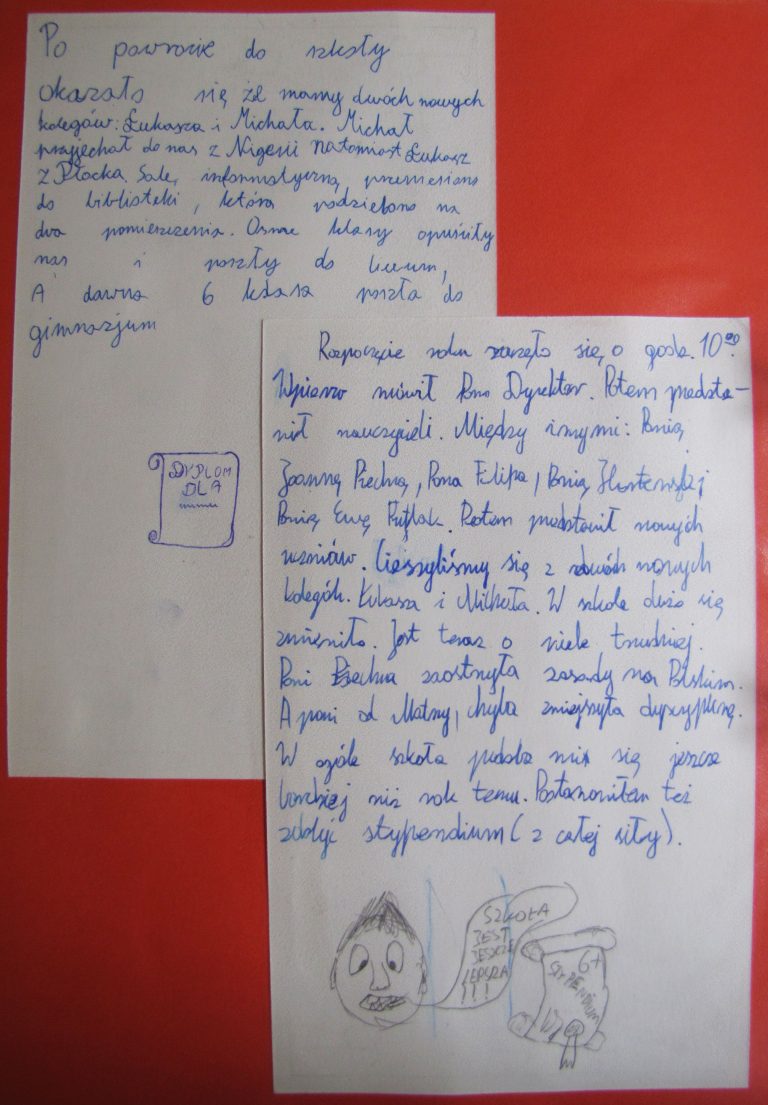 Po powrocie do szkoły
okazało się że mamy dwóch nowych
kolegów: Łukasza i Michała. Michał
przyjechał do nas z Nigerii natomiast Łukasz
z Płocka. Salę informatyczną przeniesiono
do biblioteki, którą podzielono na
dwa pomieszczenia. Ósme klasy opuściły
nas i poszły do liceum,
A dawna 6 klasa poszła do
gimnazjum
DYPLOM
DLA
Rozpoczęcie roku zaczęło się o godz. 10⁰⁰.
Wpierw mówił Pan Dyrektor. Potem przedsta-
wił nauczycieli. Między innymi: Panią
Joannę Piechną, Pana Filipa, Panią
Panią Ewę Potem przedstawił nowych
uczniów. Cieszyliśmy się z dwóch nowych
kolegów. i Michała. W szkole dużo się
zmieniło. Jest teraz o wiele trudniej.
Pani Piechna zaostrzyła zasady na Polskim.
A pani od Matmy, chyba zmiejszyła dyscyplinę.
W ogóle szkoła podoba mi się jeszcze
bardziej niż rok temu. Postanowiłem też
zdobyć stypendium (z całej siły).
SZKOŁA
JEST
JESZCZE
LEPSZA
!!!
6+
STYPENDIUM